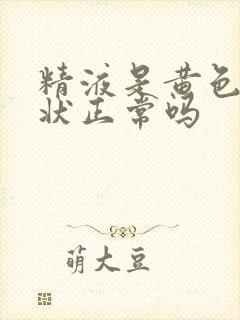 精液呈黄色
状正常吗
萌大豆